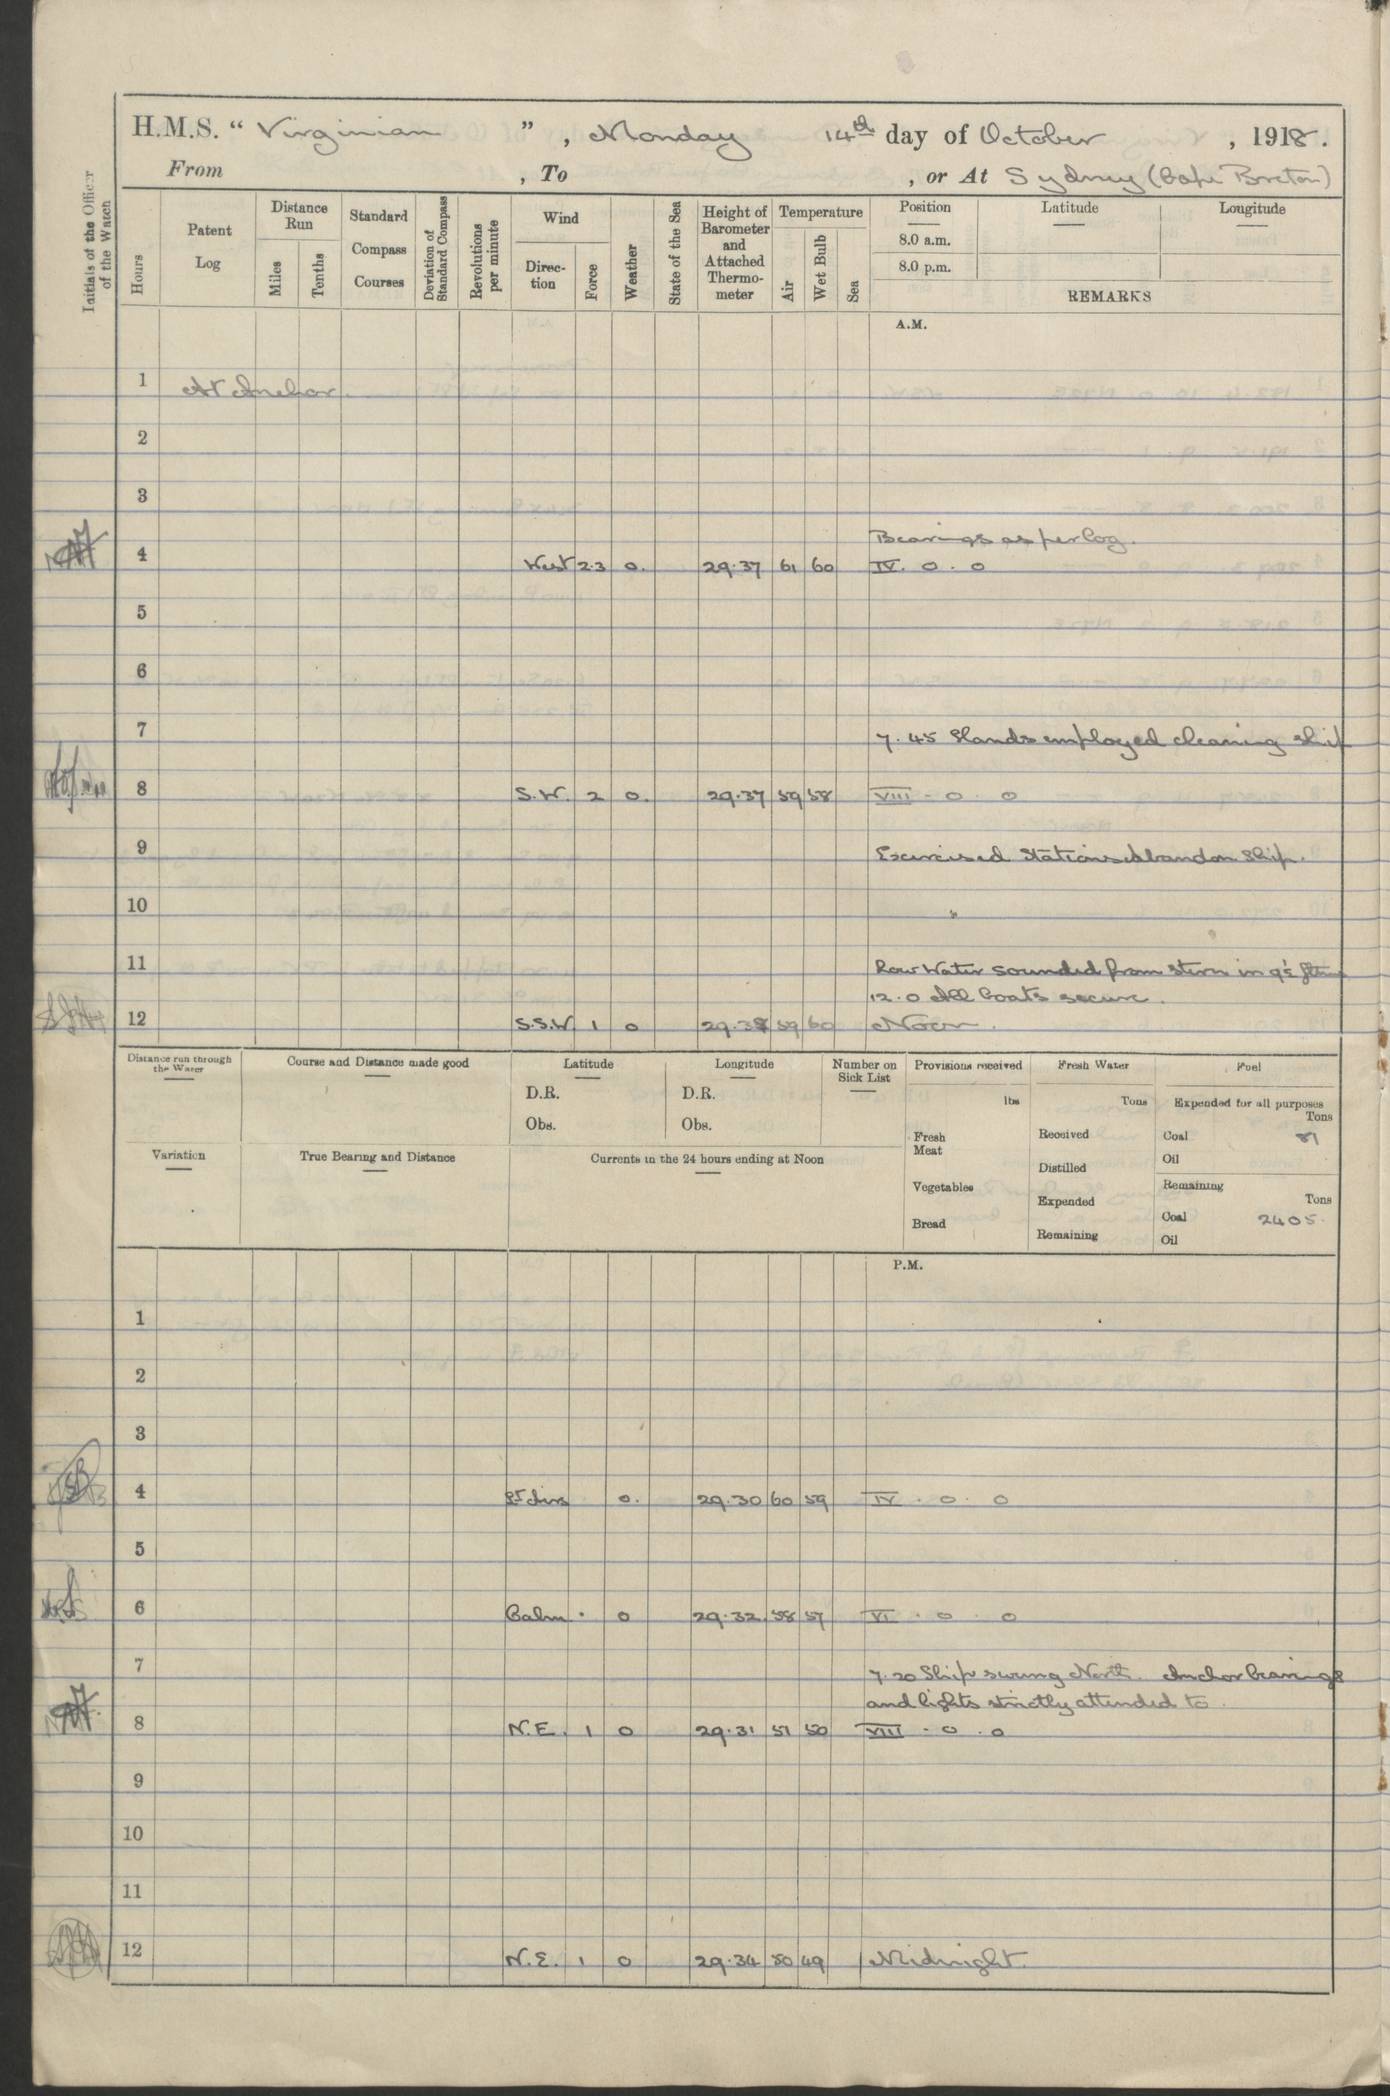 H.M.S. "Virginian", Monday 14th day of October, 1918.
From , To , or At Sydney (Cape Breton)
Initials of the Officer of the Watch
Hours
Patent Log
Distance Run
Miles
Tenths
Standard Compass Courses
Deviation of Standard Compass
Revolutions per minute
Wind
Direc-tion
Force
Weather
State of the Sea
Height of Barometer and Attached Thermo-meter
Temperature
Air
Wet Bulb
Sea
Position
Latitude
Longitude
8.0 a.m.
8.0 p.m.
REMARKS
A.M.
1 At Anchor.
2
3
Bearings as per log.
4 West 2.3 o. 29.37 61 60 IV. o. o
5
6
7 7.45 Hands employed cleaning ship
8 S.W. 2 o. 29.37 59 58 VIII - o. o
9 Exercised Stations Abandon Ship.
10
11 Low Water sounded from stern in
12.0 All boats secure.
12 S.S.W 1 o 29.38 59 60 Noon.
Distance run through the Water
Course and Distance made good
Latitude
D.R.
Obs.
Longitude
D.R.
Obs.
Number on Sick List
Provisions received
lbs
Fresh Meat
Vegetables
Bread
Fresh Water
Tons
Received
Distilled
Expended
Remaining
Fuel
Expended for all purposes
Tons
Coal 81
Oil
Remaining
Tons
Coal 2405.
Oil
Variation
True Bearing and Distance
Currents in the 24 hours ending at Noon
P.M.
1
2
3
4 Lt Airs o. 29.30 60 59 IV. o. o
5
6 Calm . o 29.32 58 57 VI. o. o
7 7.20 Ship swung North. Anchor bearings
and lights strictly attended to.
8 N.E. 1 o 29.31 51 50 VIII. o. o
9
10
11
12 N.E. 1 o 29.34 50 49 Midnight.